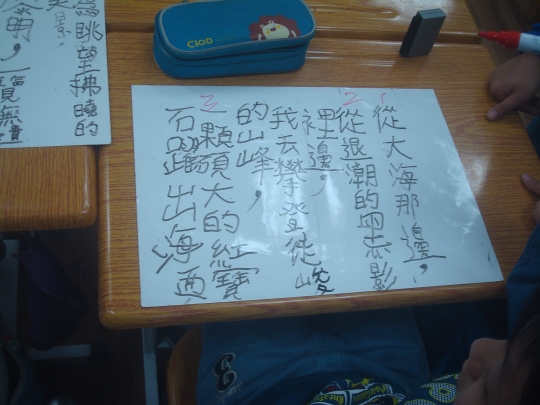 從大海那邊，
從退潮的影
裡邊，
我去攀登陡峻
的山峰，
一顆碩大的紅寶
石躍出海面
1
2
3
為眺望拂曉的
景，
黎明，
Ciao